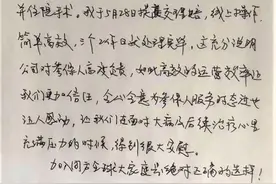 并住院手术。我于5月28日提交了理赔，线上操作
简单高效，三个工作日就处理完毕，这充分说明
公司对参保人高度负责，如此高效的运营效率让
我们更加倍信，全心全意为参保人服务的态度也
让人感动，让我们在面对大病后续治疗心里
充满压力的时候，得到很大安慰。
加入同方全球大家庭是绝对正确的选择！